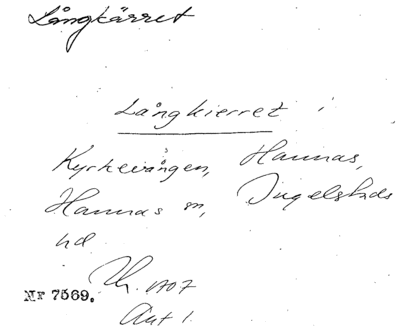 Långkärret
Långkierret i
Kyrkevången, Hannas,
Hannas sn, Ingelstads
hd
Lh. 1707
NF 7569.
Akt 1.